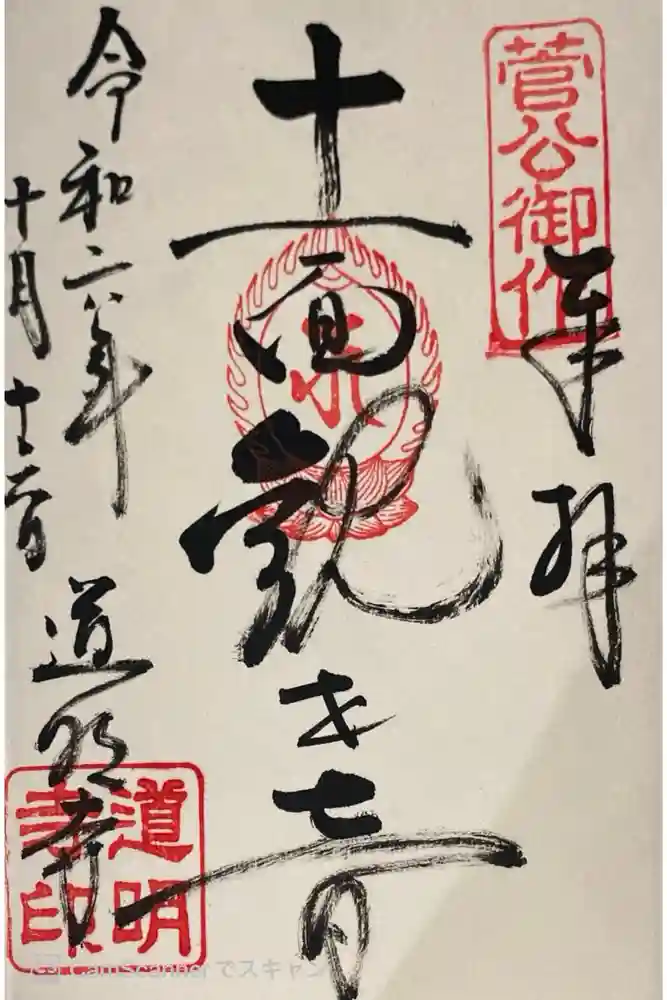 菅公御作
奉拝
十一面観世音
令和六年
十月
道明寺
道明寺印
CamScannerでスキャン